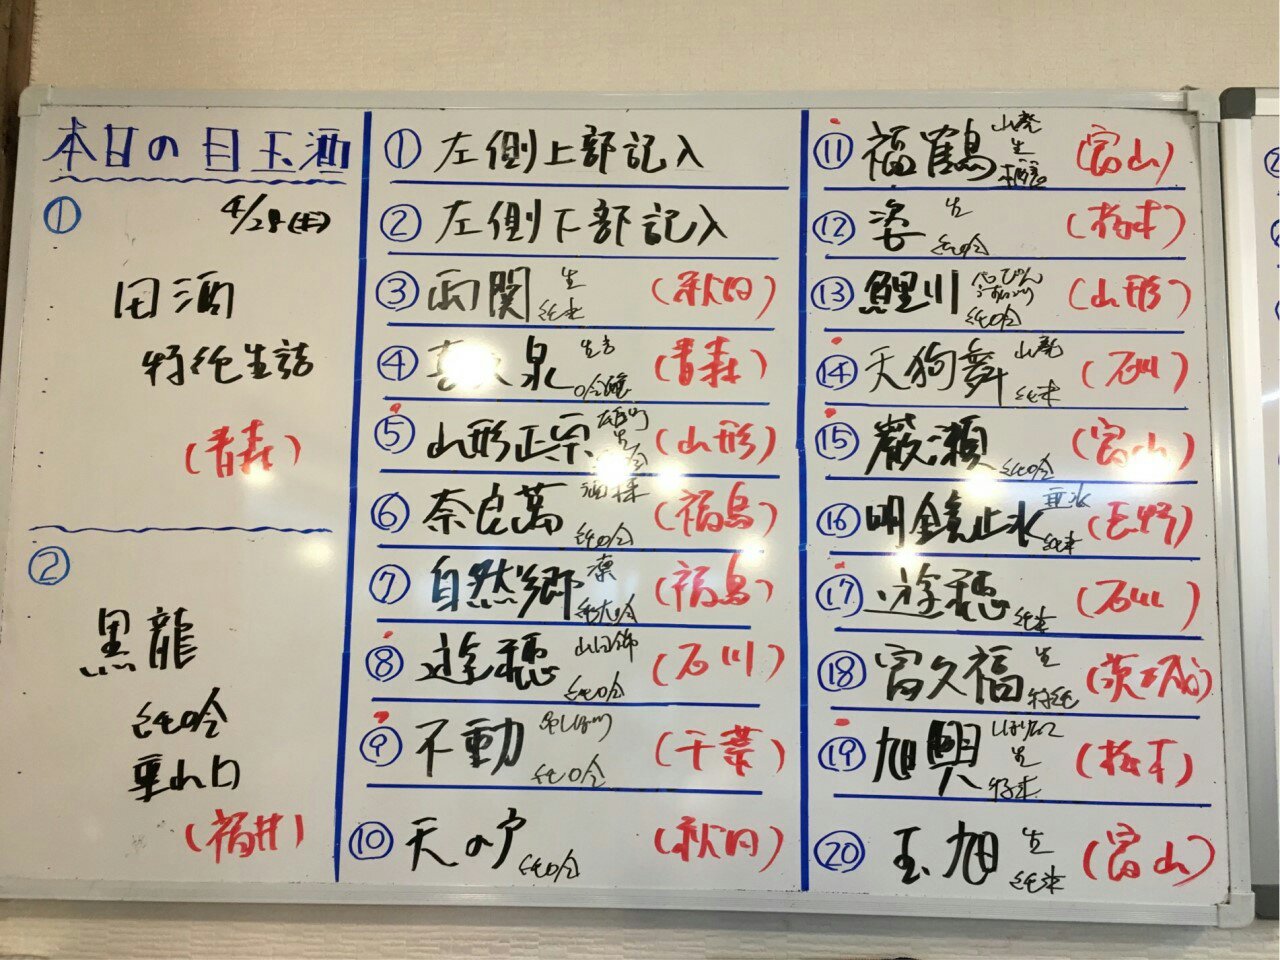 本日の目玉酒
①
4/28(土)
田酒
特純生詰
(青森)
②
黒龍
純吟
垂れ口
(福井)
① 左側上部記入
② 左側下部記入
③ 両関 生 純米 (秋田)
④ 泉 吟醸 (青森)
⑤ 山形正宗 (山形)
⑥ 奈良萬 純吟 (福島)
⑦ 自然郷 凛 純大吟 (福島)
⑧ 遊穂 山田錦 純吟 (石川)
⑨ 不動 吊しぼり 純吟 (千葉)
⑩ 天の戸 純吟 (秋田)
⑪ 福鶴 山廃 生 (富山)
⑫ 姿 生 純吟 (栃木)
⑬ 鯉川 べっぴん 純吟 (山形)
⑭ 天狗舞 山廃 純米 (石川)
⑮ 厳瀬 純吟 (富山)
⑯ 明鏡止水 垂氷 純米 (長野)
⑰ 遊穂 純米 (石川)
⑱ 富久福 生 特純 (茨城)
⑲ 旭興 しぼりたて 生 特米 (栃木)
⑳ 玉旭 生 純米 (富山)